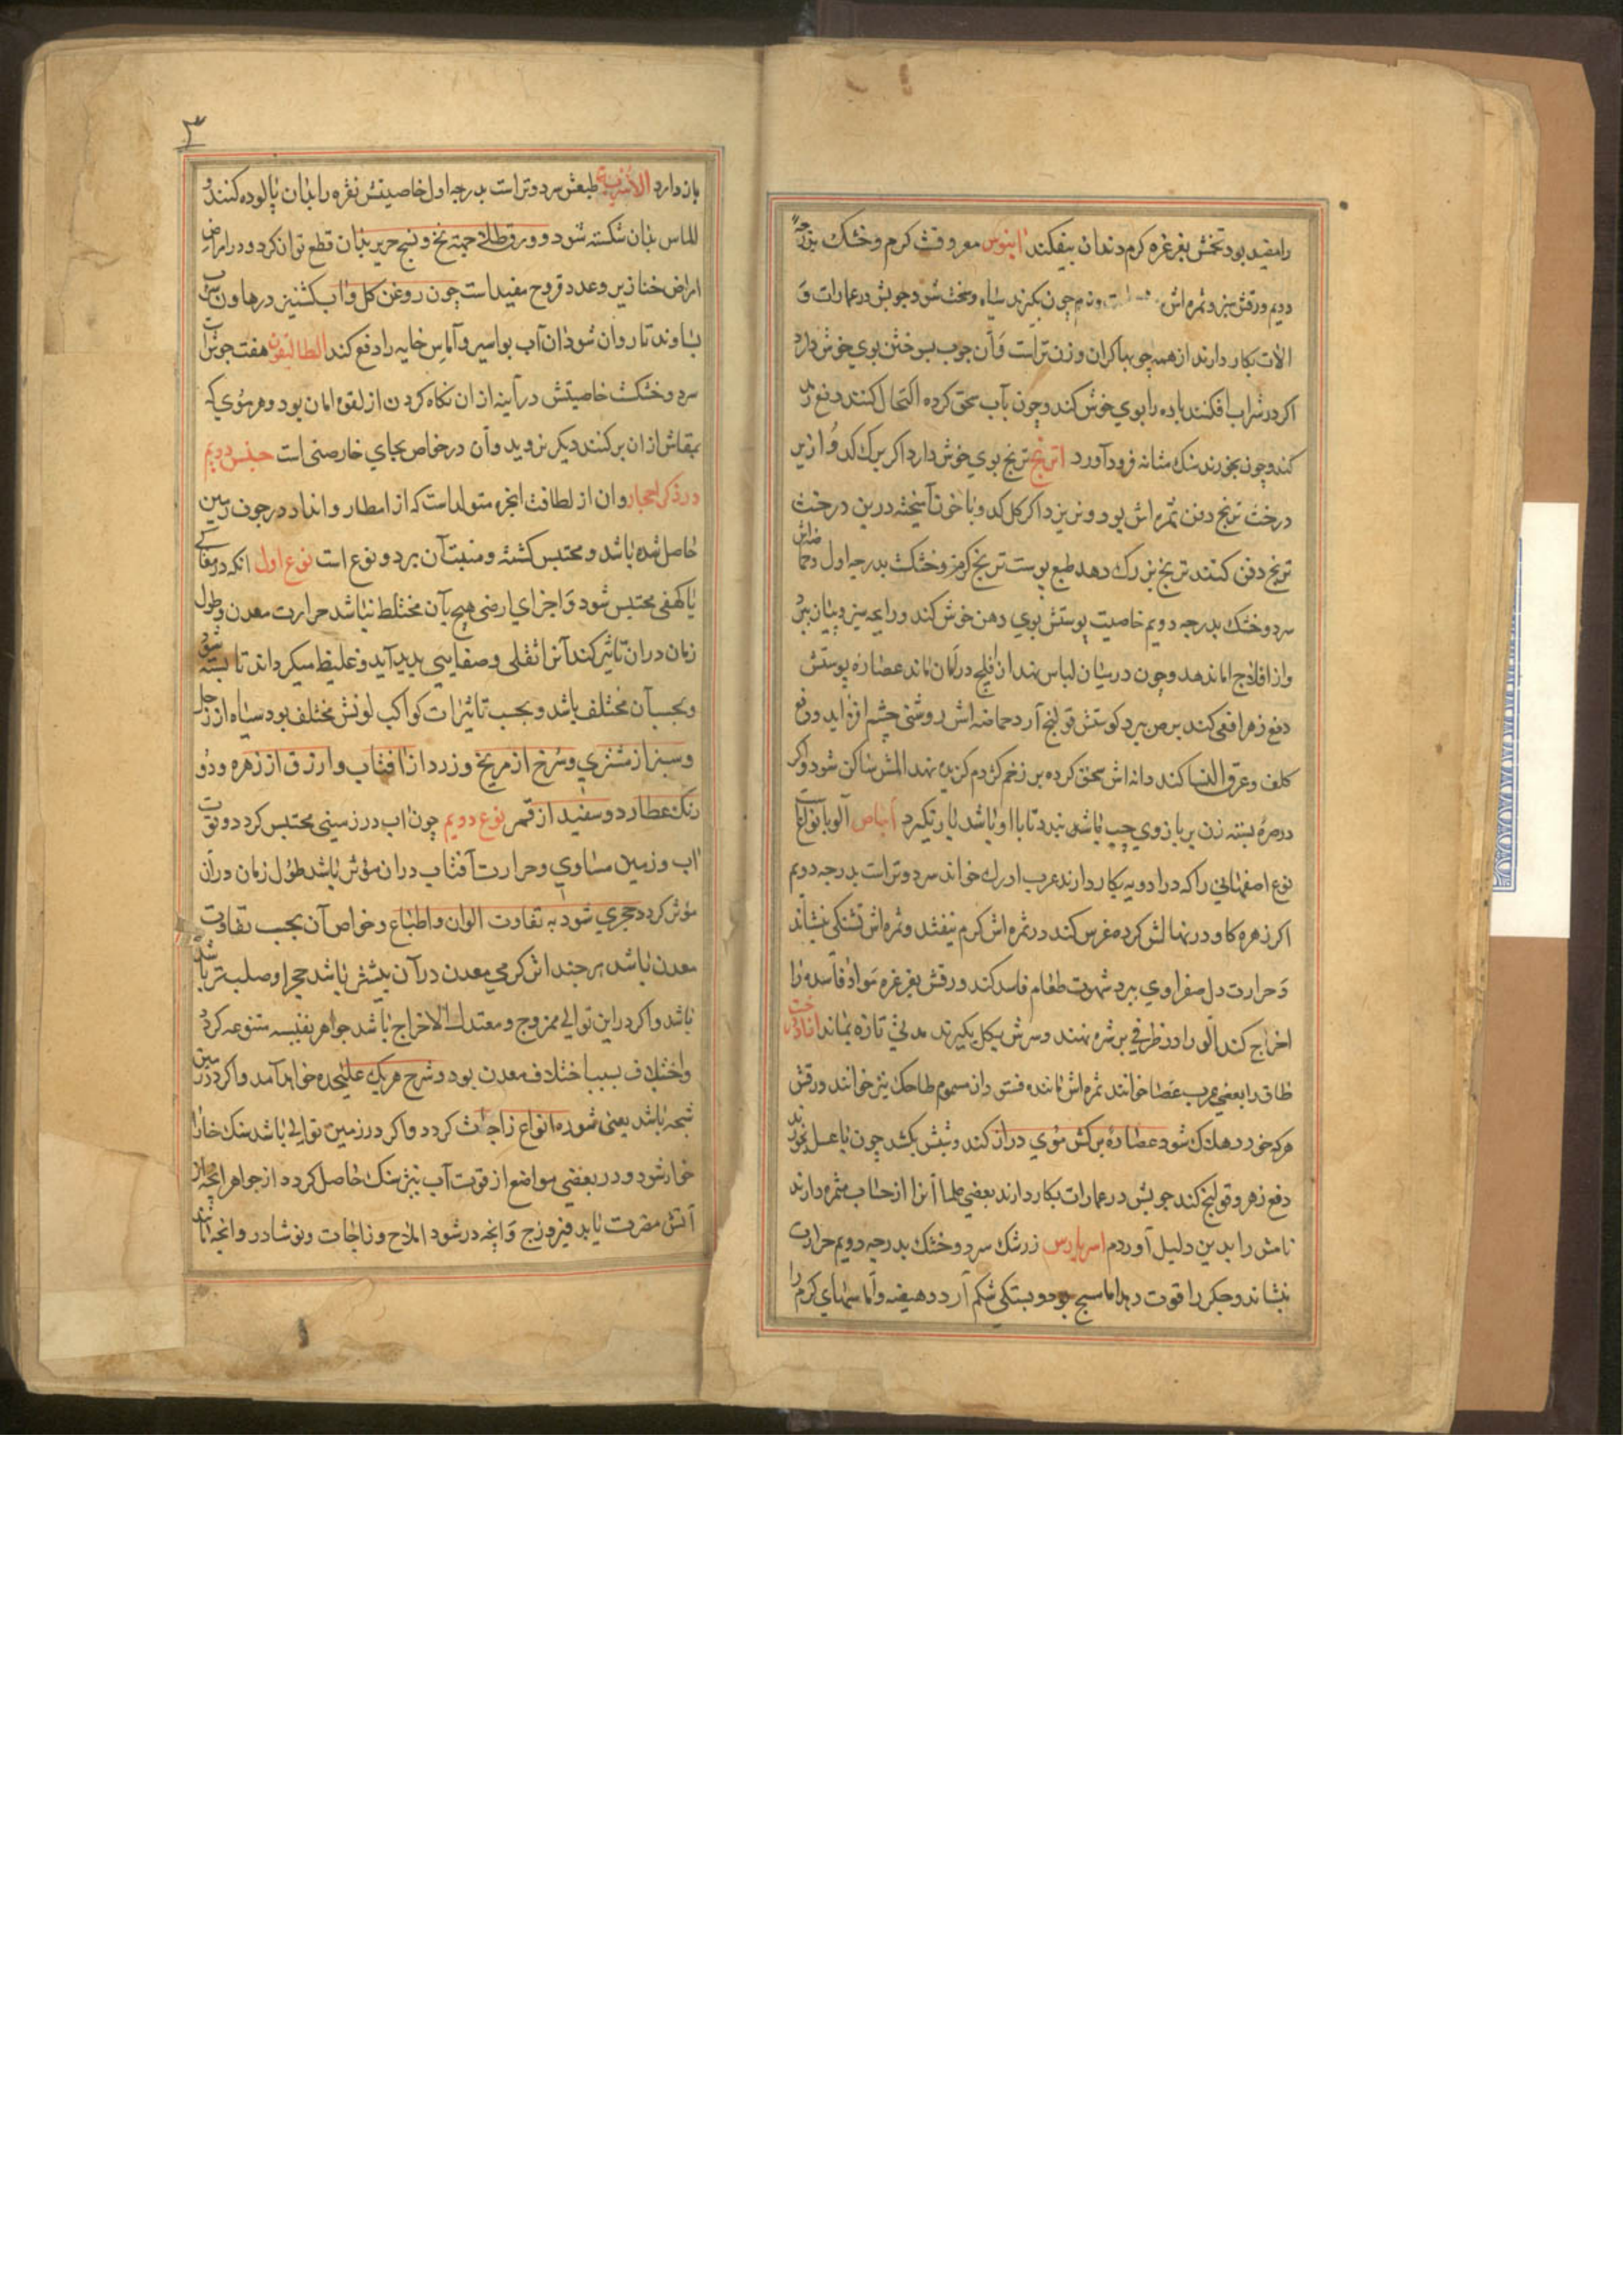 را مفید بود تخمش بغرغره کرم دندان بیفکند ابنوس معروفت کرم و خشک بدرجه
دویم ورقش سبز و ثمره اش چون بکیرند سیاه و سخت شود و چوبش در عمارات و
الات بکار دارند از همه چوبها کران وزن تر است و آن چوب بسوختن بوی خوش دارد
اکر در شراب افکنند باده را بوی خوش کند و چون بآب سحق کرده اکتحال کنند دفع رمد
کند و چون بخورند سنک مثانه فرود آورد اترنج ترنج بوی خوش دارد اکر برک کدو از زیر
درخت ترنج دفن ثمره اش بود و نریزد اکر کل کدو با خون آمیخته در بن درخت
ترنج دفن کنند ترنج بزرک دهد طبع پوست ترنج کرم و خشکت بدرجه اول و حماضش
سرد و خشک بدرجه دویم خاصیت پوستش بوی دهن خوش کند و رایحه سیر و پیاز ببرد
و از افلاج امان دهد و چون در میان لباس نهند از فلج در امان ماند عصاره پوستش
دفع زهر افعی کند برص ببرد کوشتش قولنج آرد حماضه اش روشنی چشم افزاید و رفع
کلف و عرق النسا کند دانه اش سحق کرده بر زخم کژدم کزیده نهند المش ساکن شود و اکر
در صره بسته زن بر بازوی چپ باشد نبرد تا با او باشد بار نکیرد اجاص آلو بانواع است
نوع اصفهانی را که در ادویه بکار دارند عرب ادرک خواند سرد و تر است بدرجه دویم
اکر زهره کاو در نهالش کرده غرس کنند در ثمره اش کرم نیفتد و ثمره اش تشنکی بنشاند
و حرارت دل صفراوی ببرد شهوت طعام فاسد کند ورقش بغرغره مواد فاسده را
اخراج کند الو را در ظرفی بر شره نهند و سرش بکل بکیرند مدتی تازه بماند ازاد درخت
طاق را بعضی عرب عصا خوانند ثمره اش ماننده فستق و ان مسموم طاحک نیز خوانند ورقش
هرکه خورد هلاک شود عصاره برکش موی دراز کند و شپش بکشد چون با عسل بخورند
دفع زهر و قولنج کند چوبش در عمارات بکار دارند بعضی علما آنرا از حساب مثمره دارند
نامش را بدین دلیل آوردم امبرباریس زرشک سرد و خشک بدرجه دویم حرارت
بنشاند و جکر را قوت دهد اما سبج بود و بستکی شکم آرد و هیضه و اماسهای کرم را
۳
باز دارد طبعش سرد و تر است بدرجه اول خاصیتش نقره را بدان پالوده کنند و
الماس بدان شکسته شود و ورق طلائی جهته نخ و نسج حریر بدان قطع توان کرد و در امراض
امراض خنازیر و غدد و قروح مفید است چون روغن کل و اب کشنیز در هاون سرب
بساوند تا روان شود ان آب بواسیر و آماس خایه را دفع کند الطالیقون هفت جوش است
سرد و خشکت خاصیتش در آینه از ان نکاه کردن از لقوه امان بود و هر موی که
بمقاش از ان برکنند دیکر نروید و آن در خواص بجای خارصنی است جنس دویم
در ذکر احجار و ان از لطافت ابخره متولد است که از امطار و انداء در جوف زمین
حاصل شده باشد و محتبس کشته و منبت آن بر دو نوع است نوع اول انکه در مغاکی
یا کهفی محتبس شود و اجزای ارضی هیچ بآن مختلط نباشد حرارت معدن و طول
زمان در ان تاثیر کند آنرا ثقلی و صفایی پدید آید و غلیظ میکرداند تا بسته شود
و بحسب آن مختلف باشد و بحسب تاثیرات کواکب لونش مختلف بود سیاه از زحل
و سبز از مشتری و سرخ از مریخ و زرد از افتاب و ارزق از زهره و دو
رنک عطارد و سفید از قمر نوع دویم چون اب در زمینی محتبس کردد و قوت
اب و زمین مساوی و حرارت آفتاب در ان مؤثر باشد طول زمان در آن
مؤثر کردد حجری شود به تفاوت الوان و اطباع و خواص آن بحسب تفاوت
معدن باشد هر چند اش کرمی معدن در آن بیشتر باشد حجر او صلب تر باشد
باشد و اکر در این توالی ممزوج و معتدل الاخراج باشد جواهر نفیسه متنوعه کردد
و اختلاف بسبب اختلاف معدن بود و شرح هر یک علیحده خواهد آمد و اکر در زمین
شبحه باشد یعنی شوره انواع زاجات کردد و اکر در زمین توالی باشد سنک خارا
خوار شود و در بعضی مواضع از قوت آب نیز سنک حاصل کردد از جواهر انچه از
آتش مضرت یابد فیروزج و انچه در شود املاح و زاجات و نوشادر و انچه